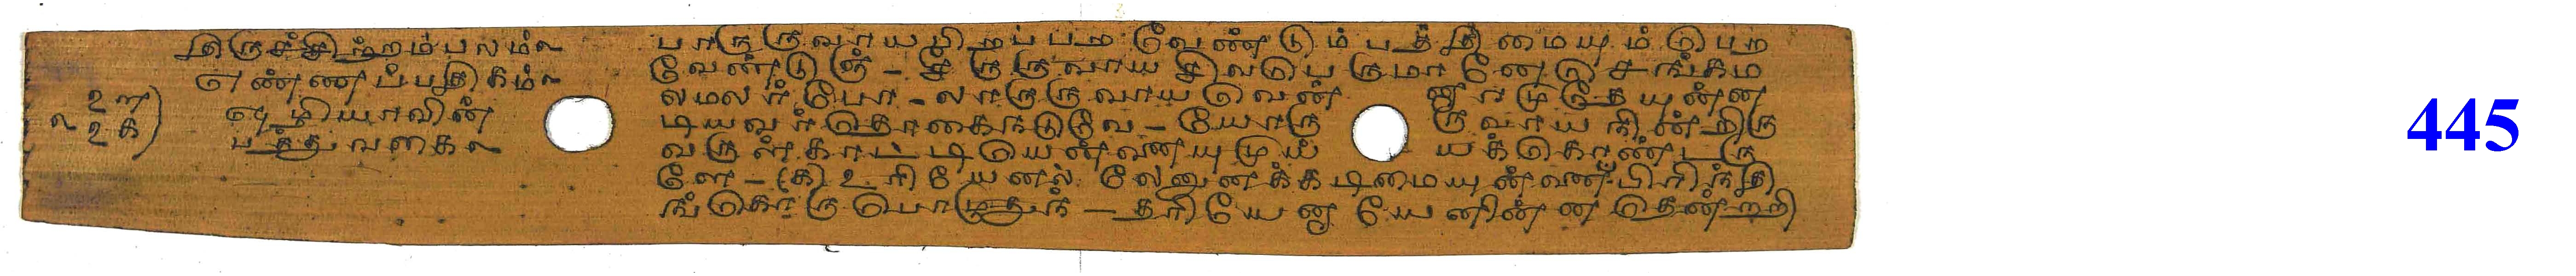 திருச்சிற்றம்பலம்
எண்ணப்பதிகம்
ஏழியாவின்
பத்துவகை
உரு
உக
பாருருவாயபிறப்பறவேண்டும்பத்திமையும்பெற
வேண்டுஞ் - சீருருவாயசிவபெருமானேசெங்கம
லமலர்போ - லாருருவாயவென்னாரமுதேயுன்ன
டியவர்தொகைநடுவே - யோருருவாயநின்றிரு
வருள்காட்டியென்னையுமுய்யக்கொண்டரு
ளே - (க) உரியேனல்லேனுனக்கடிமையுன்னைப்பிரிந்தி
ங்கொருபொழுதுந் - தரியேனாயேனின்னதென்றறி
445